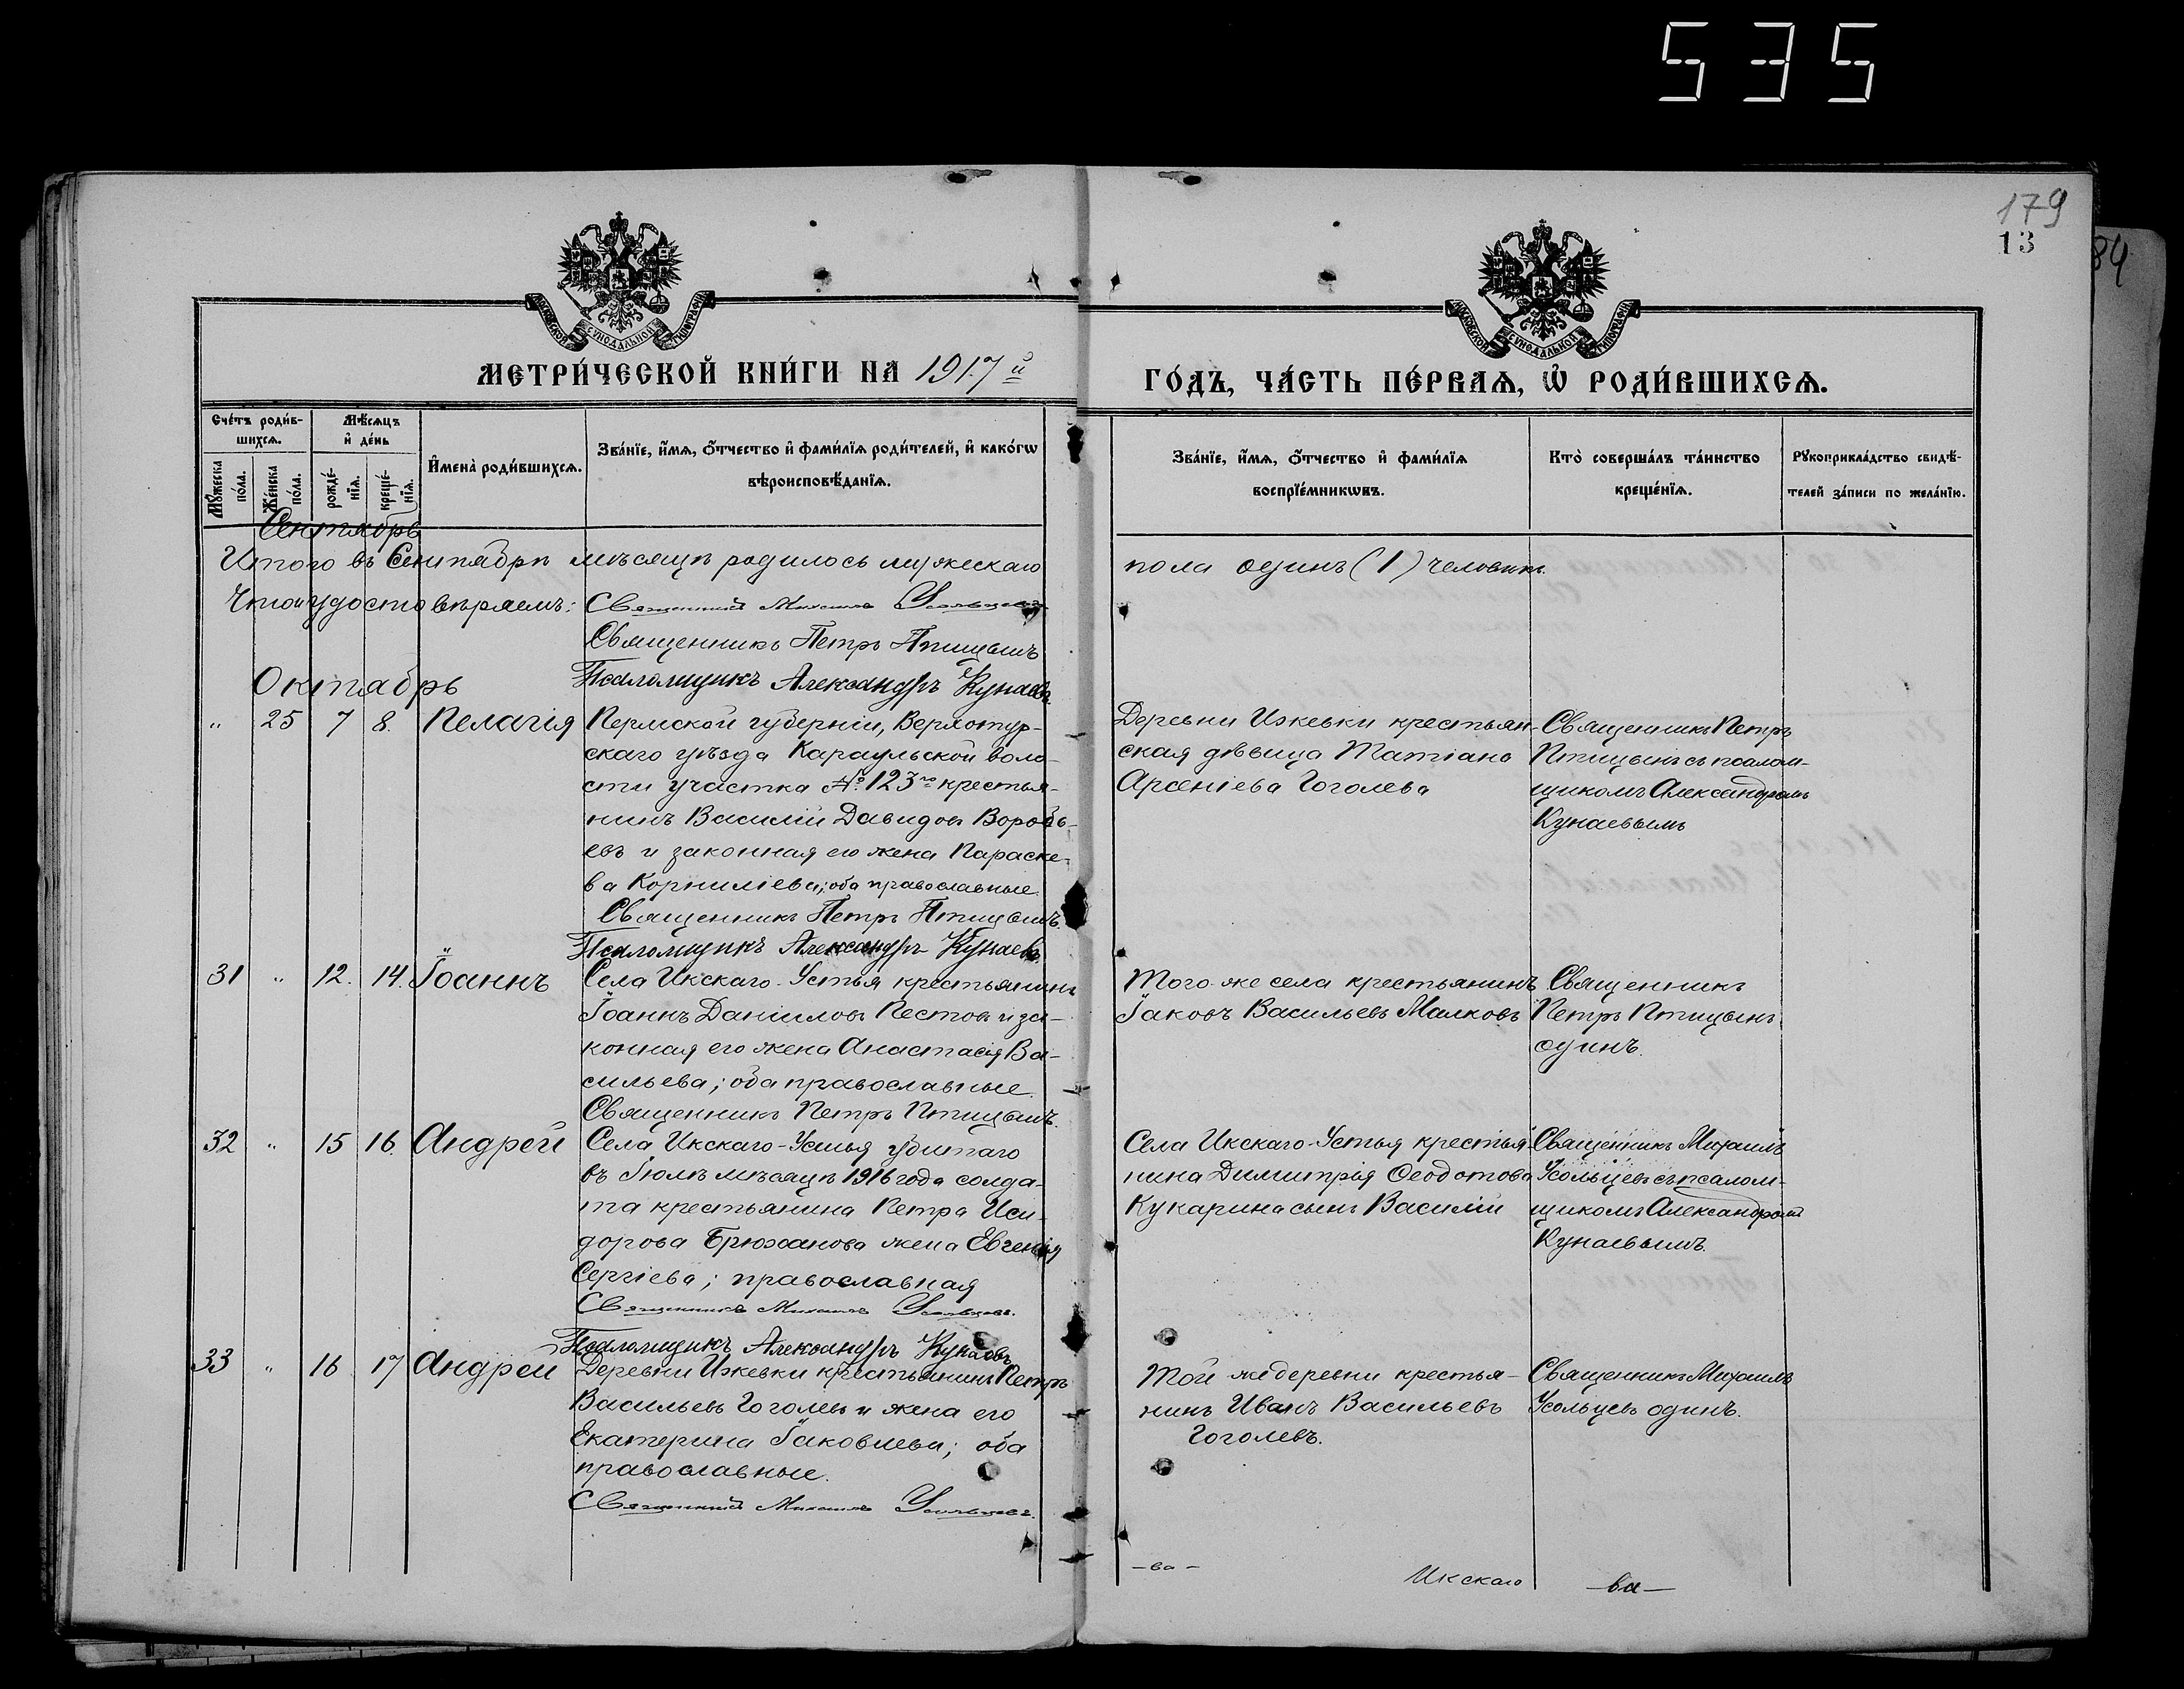 535
179
13
84
МОСКОВСКОЙ СУНОДАЛЬНОЙ ТИПОГРАФІИ
МОСКОВСКОЙ СУНОДАЛЬНОЙ ТИПОГРАФІИ
МЕТРИ́ЧЕСКОЙ КНИ́ГИ НА 1917й
ГО́ДЪ, ЧА́СТЬ ПЕ́РВАѦ, Ѽ РОДИ́ВШИХСѦ.
Сче́тъ роди́в-
шихсѧ.
Мѣ́сѧцъ
и҆ де́нь
Мꙋ́жеска
по́ла.
Же́нска
по́ла.
рожде́-
нїѧ.
креще́-
нїѧ.
И҆мена̀ роди́вшихсѧ.
Зва́нїе, и҆́мѧ, ѻ҆́тчество и҆ фами́лїѧ роди́телей, и҆ како́гѡ
вѣроисповѣ́данїѧ.
Зва́нїе, и҆́мѧ, ѻ҆́тчество и҆ фами́лїѧ
воспрїе́мникѡвъ.
Кто̀ соверша́лъ та́инство
креще́нїѧ.
Рꙋкоприкла́дство свидѣ́-
телей за́писи по жела́нїю.
Сентябрь
Итого въ Сентябрѣ мѣсяцѣ родилось мужескаго пола одинъ (1) человѣкъ.
Что и удостовѣряемъ: Священникъ Михаилъ Усольцевъ
Священникъ Петръ Птицынъ
Псаломщикъ Александръ Кунаевъ.
Октябрь
„ 25 7 8. Пелагія
Пермской губерніи, Верхотур-
скаго уѣзда Караульской воло-
сти участка № 123го крестья-
нинъ Василій Давидовъ Воробь-
евъ и законная его жена Параске-
ва Корниліева; оба православные.
Священникъ Петръ Птицынъ.
Псаломщикъ Александръ Кунаевъ.
Деревни Ижевки крестьян-
ская дѣвица Татіана
Арсеніева Гоголева
Священникъ Петръ
Птицынъ съ псалом-
щикомъ Александромъ
Кунаевымъ
31 „ 12. 14. Іоаннъ
Села Икскаго-Устья крестьянинъ
Іоаннъ Даніиловъ Пестовъ и за-
конная его жена Анастасія Ва-
сильева; оба православные.
Священникъ Петръ Птицынъ.
Того же села крестьянинъ
Іаковъ Васильевъ Малковъ
Священникъ
Петръ Птицынъ
одинъ.
32 „ 15 16. Андрей
Села Икскаго-Устья убитаго
въ Іюлѣ мѣсяцѣ 1916 года солда-
та крестьянина Петра Иси-
дорова Брюханова жена Евгенія
Сергіева; православная
Священникъ Михаилъ Усольцевъ.
Псаломщикъ Александръ Кунаевъ
Села Икскаго-Устья крестья-
нина Димитрія Ѳеодотова
Кукарина сынъ Василій
Священникъ Михаилъ
Усольцевъ съ псалом-
щикомъ Александромъ
Кунаевымъ.
33 „ 16 17 Андрей
Деревни Ижевки крестьянинъ Петръ
Васильевъ Гоголевъ и жена его
Екатерина Іаковлева; оба
православные.
Священникъ Михаилъ Усольцевъ.
Той же деревни крестья-
нинъ Иванъ Васильевъ
Гоголевъ.
Священникъ Михаилъ
Усольцевъ одинъ.
-ва-
Икскаго
-ва-